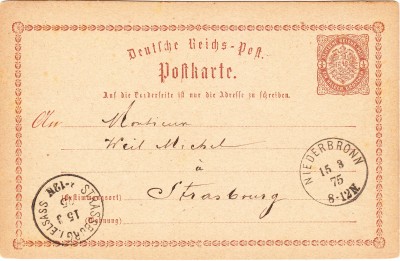 Deutsche Reichs-Post.
Postkarte.
Auf die Vorderseite ist nur die Adresse zu schreiben.
An Monsieur
Weil Michel
à
(Bestimmungsort) Strasbourg
NIEDERBRONN
15 3
75
8-12N
STRASSBURG I. ELSASS
15 3
75